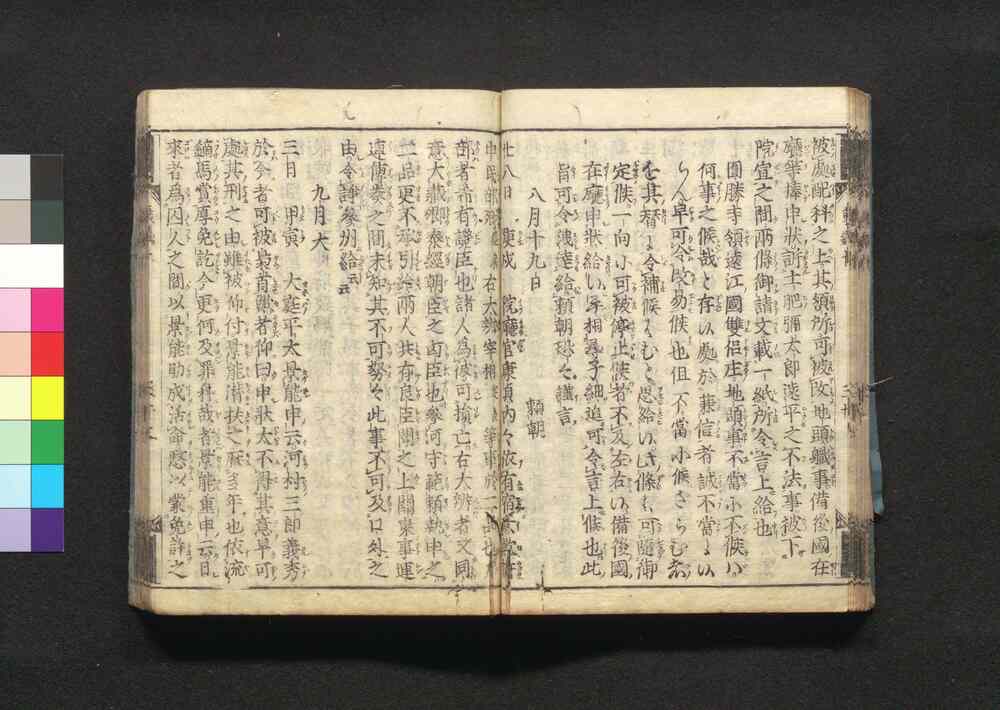 被處配糾之上其領所可被改地頭軄事備後國在
廳等捧申狀訴土肥彌太郎遠平之不法事被下
院宣之間兩條御請文載一紙所令言上給也
圓勝寺領遠江國雙侶庄地頭事不當に不候ハ
何事之候哉と存い處於兼信者誠不當にい
らん早可令改易候也但不當に候さらむ者
を其替に令補候はむと思給い此條も可隨御
定候一向に可被停止候者不及左右い備後國
在廳申狀給い早相尋子細追可令言上候也此
旨可令洩達給頼朝恐々謹言
八月十九日 頼朝
廿八日 庚戌 院廳官康貞内々依有
右大辨宰相
部者希有讒臣也諸人為彼可損亡右大辨者文同
意大藏卿泰經朝臣之凶臣也參河守範頼執申之
二品更不承引給兩人共有良臣聞之上關東事連
連傳奏之間未知其不可努々此事不可及口外之
由令諍參州給云云
九月大
三日 甲寅 大庭平太景能申云河村三郎義秀
於今者可被梟首歟者仰曰申狀太不得其意早可
處其刑之由雖被仰付景能潜扶之歴多年也依流
鏑馬賞厚免訖今更何及罪科哉者景能重申云日
求者為囚人之間以景能助成活命憖以蒙免許之